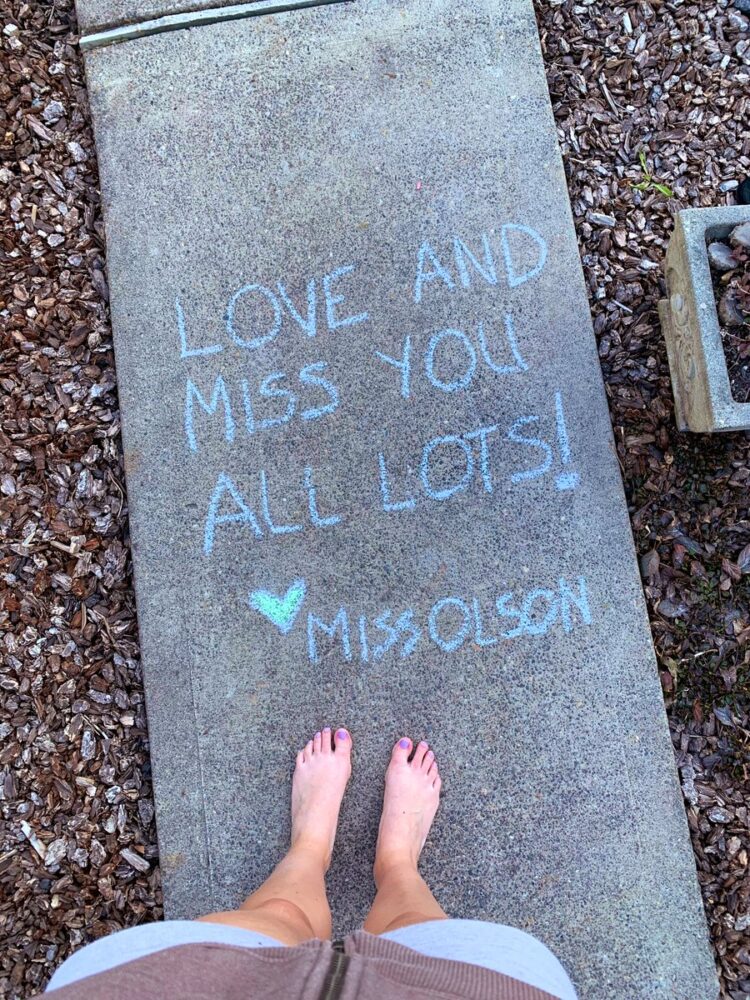 LOVE AND
MISS YOU
ALL LOTS!
MISS OLSON